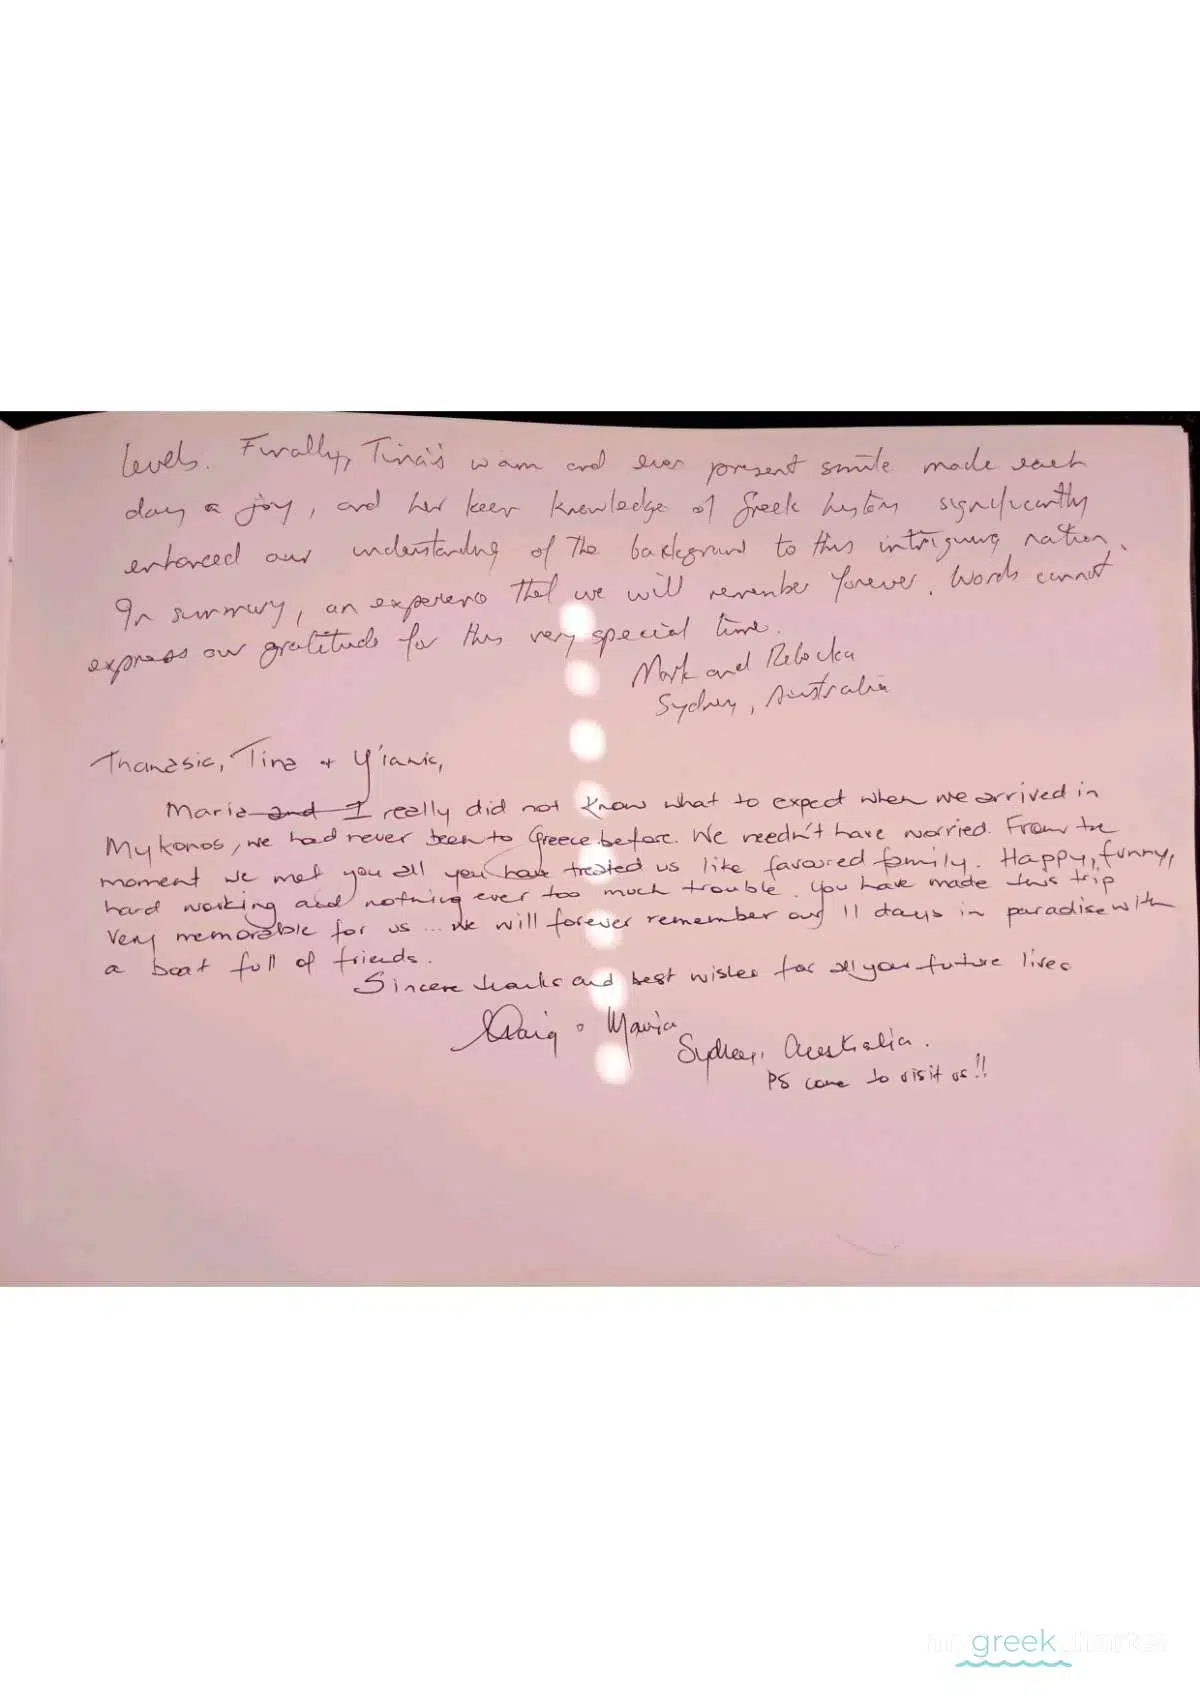 levels. Finally, Tina's warm and ever present smile made each
day a joy, and her keen knowledge of Greek history significantly
enhanced our understanding of the background to this intriguing nation.
In summary, an experience that we will remember forever. Words cannot
express our gratitude for this very special time.
Mark and Rebecka
Sydney, Australia
Thanasis, Tina + Yianis,
Maria and I really did not know what to expect when we arrived in
Mykonos, we had never been to Greece before. We needn't have worried. From the
moment we met you all you have treated us like favoured family. Happy, funny,
hard working and nothing ever too much trouble. You have made this trip
very memorable for us ... we will forever remember our 11 days in paradise with
a boat full of friends.
Sincere thanks and best wishes for all your future lives
Craig & Maria
Sydney, Australia.
PS come to visit us!!
my greek charter